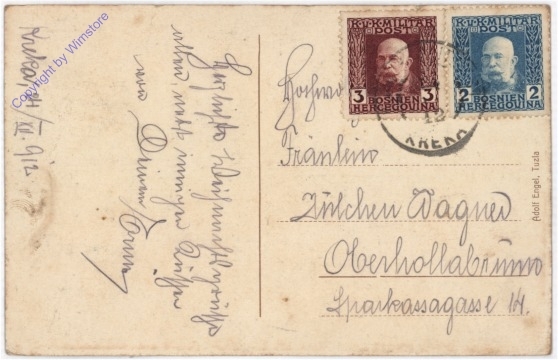 Kreka, 21/XII. 912
Copyright by Wimstore
Herzlichste Weihnachtsgrüße
allen nebst innigen Küssen
von
Deinem
K.u.K. MILITÄR
POST
3 3
BOSNIEN
HERCEGOVINA
K.u.K. MILITÄR
POST
2 2
BOSNIEN
HERCEGOVINA
KREKA
Hochw
Fräulein
Julchen Wagner
Oberhollabrunn
Sparkassagasse 14.
Adolf Engel, Tuzla